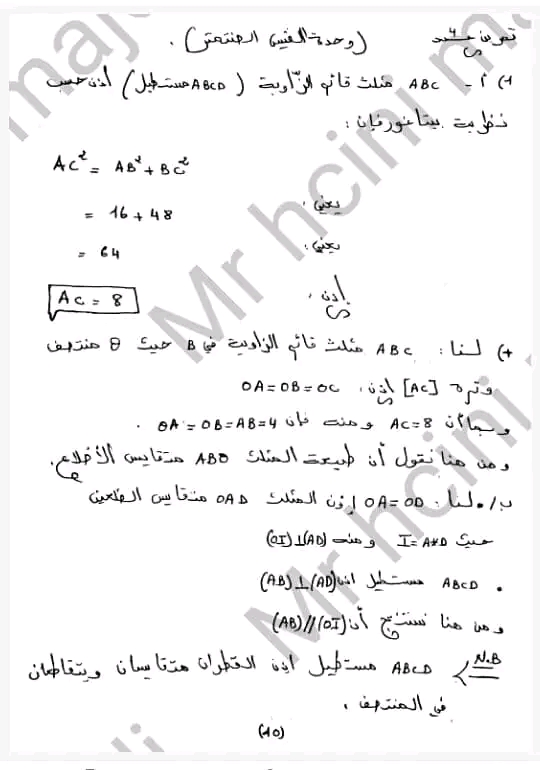 تمرين عدد 4 (وحدة القيس الصنتمتر).
1) أ - ABC مثلث قائم الزّاوية (ABCD مستطيل) إذن حسب
نظرية بيتاغور فإن :
AC² = AB² + BC²
= 16 + 48 يعني،
= 64 يعني،
AC = 8 إذن،
+) لنا : ABC مثلث قائم الزاوية في B حيث O منتصف
وتره [AC] إذن، OA = OB = OC
وبما أن AC = 8 ومنه فإن OA = OB = AB = 4 .
ومن هنا نقول أن طبيعة المثلث ABO متقايس الأضلاع.
ب/ • لنا : OA = OD إذن المثلث OAD متقايس الضلعين
حيث I = A*D ومنه (OI)⊥(AD)
• ABCD مستطيل اذن (AB)⊥(AD)
ومن هنا نستنتج أن (AB)//(OI)
N.B ABCD مستطيل اذن القطران متقايسان ويتقاطعان
في المنتصف .
(10)
Mr hcini maj
Mr hcini